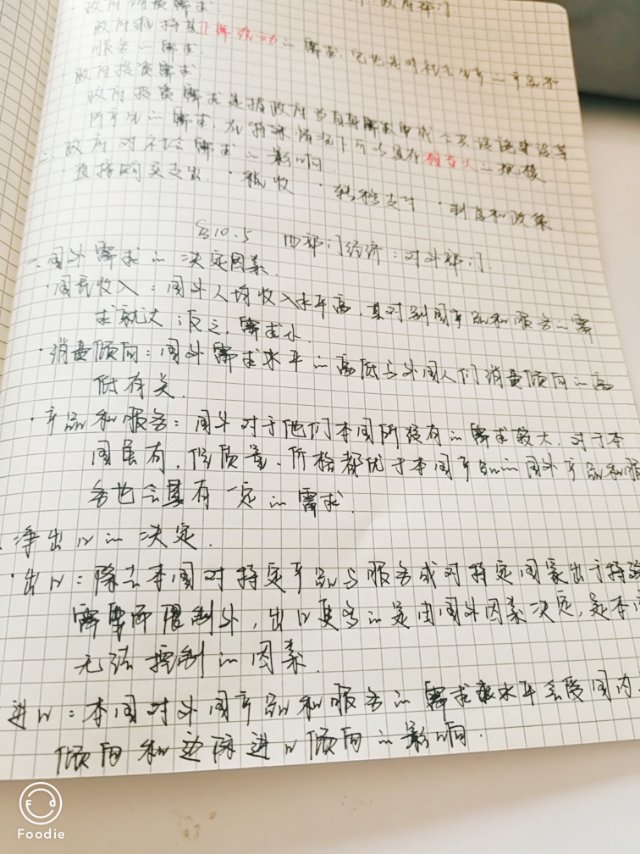 政府消费需求
政府部门
政府维持其日常活动的需求,
服务的需求
·政府投资需求
政府投资需求是指政府
二、政府对社会需求的影响
·直接购买支出 ·税收 ·转移支付 ·制度和政策
§10.5 四部门经济:对外部门
一、国外需求的决定因素
·国民收入:国外人均收入水平高,其对别国产品和服务的需
求就大;反之,需求小.
·消费倾向:国外需求水平的高低与外国人们消费倾向的高
低有关.
·产品和服务:国外对于他们本国所没有的需求较大,对于本
国虽有,但质量、价格都优于本国产品的国外产品和服
务也会具有一定的需求.
净出口的决定.
·出口:除去本国对特定产品与服务或对特定国家出于特殊
需要所限制外,出口更多的是由国外因素决定,是本国
无法控制的因素.
进口:本国对外国产品和服务的需求水平会受国内
倾向和边际进口倾向的影响.
Foodie